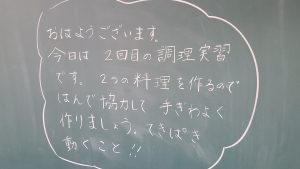 おはようございます。
今日は 2回目の調理実習
です。2つの料理を作るので
はんで協力して 手ぎわよく
作りましょう。てきぱき
動くこと!!